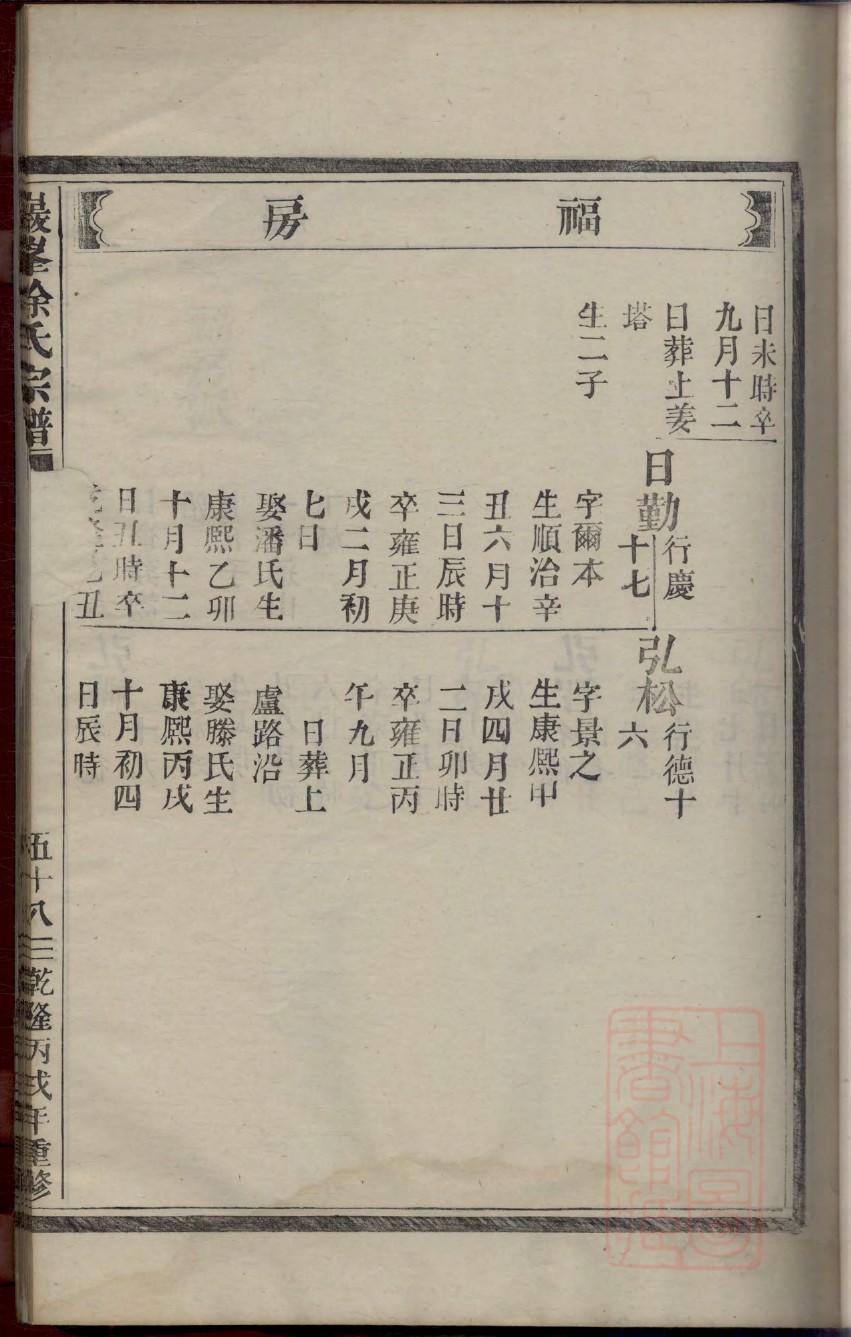 福房
日未時卒
九月十二
日葬上姜
塔
生二子
日勤
行慶
十七
字爾本
生順治辛
丑六月十
三日辰時
卒雍正庚
戌二月初
七日
娶潘氏生
康熙乙卯
十月十二
日丑時卒
丑
弘松
行德十
六
字景之
生康熙甲
戌四月廿
二日卯時
卒雍正丙
午九月
日葬上
盧路沿
娶滕氏生
康熙丙戌
十月初四
日辰時
巖峯徐氏宗譜
五十八
三
乾隆丙戌年重修
上海圖書館藏